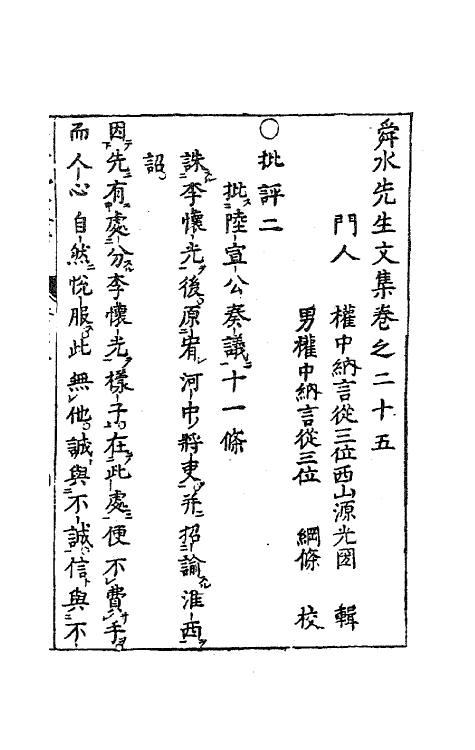 舜水先生文集卷之二十五
門人 權中納言從三位西山源光圀 輯
男權中納言從三位 綱條 校
○批評二
批陸宣公奏議十一條
誅李懷光後原宥河中將吏并招諭淮西
詔
因先有處分李懷光樣子在此處便不費手
而人心自然悅服此無他誠與不誠信與不